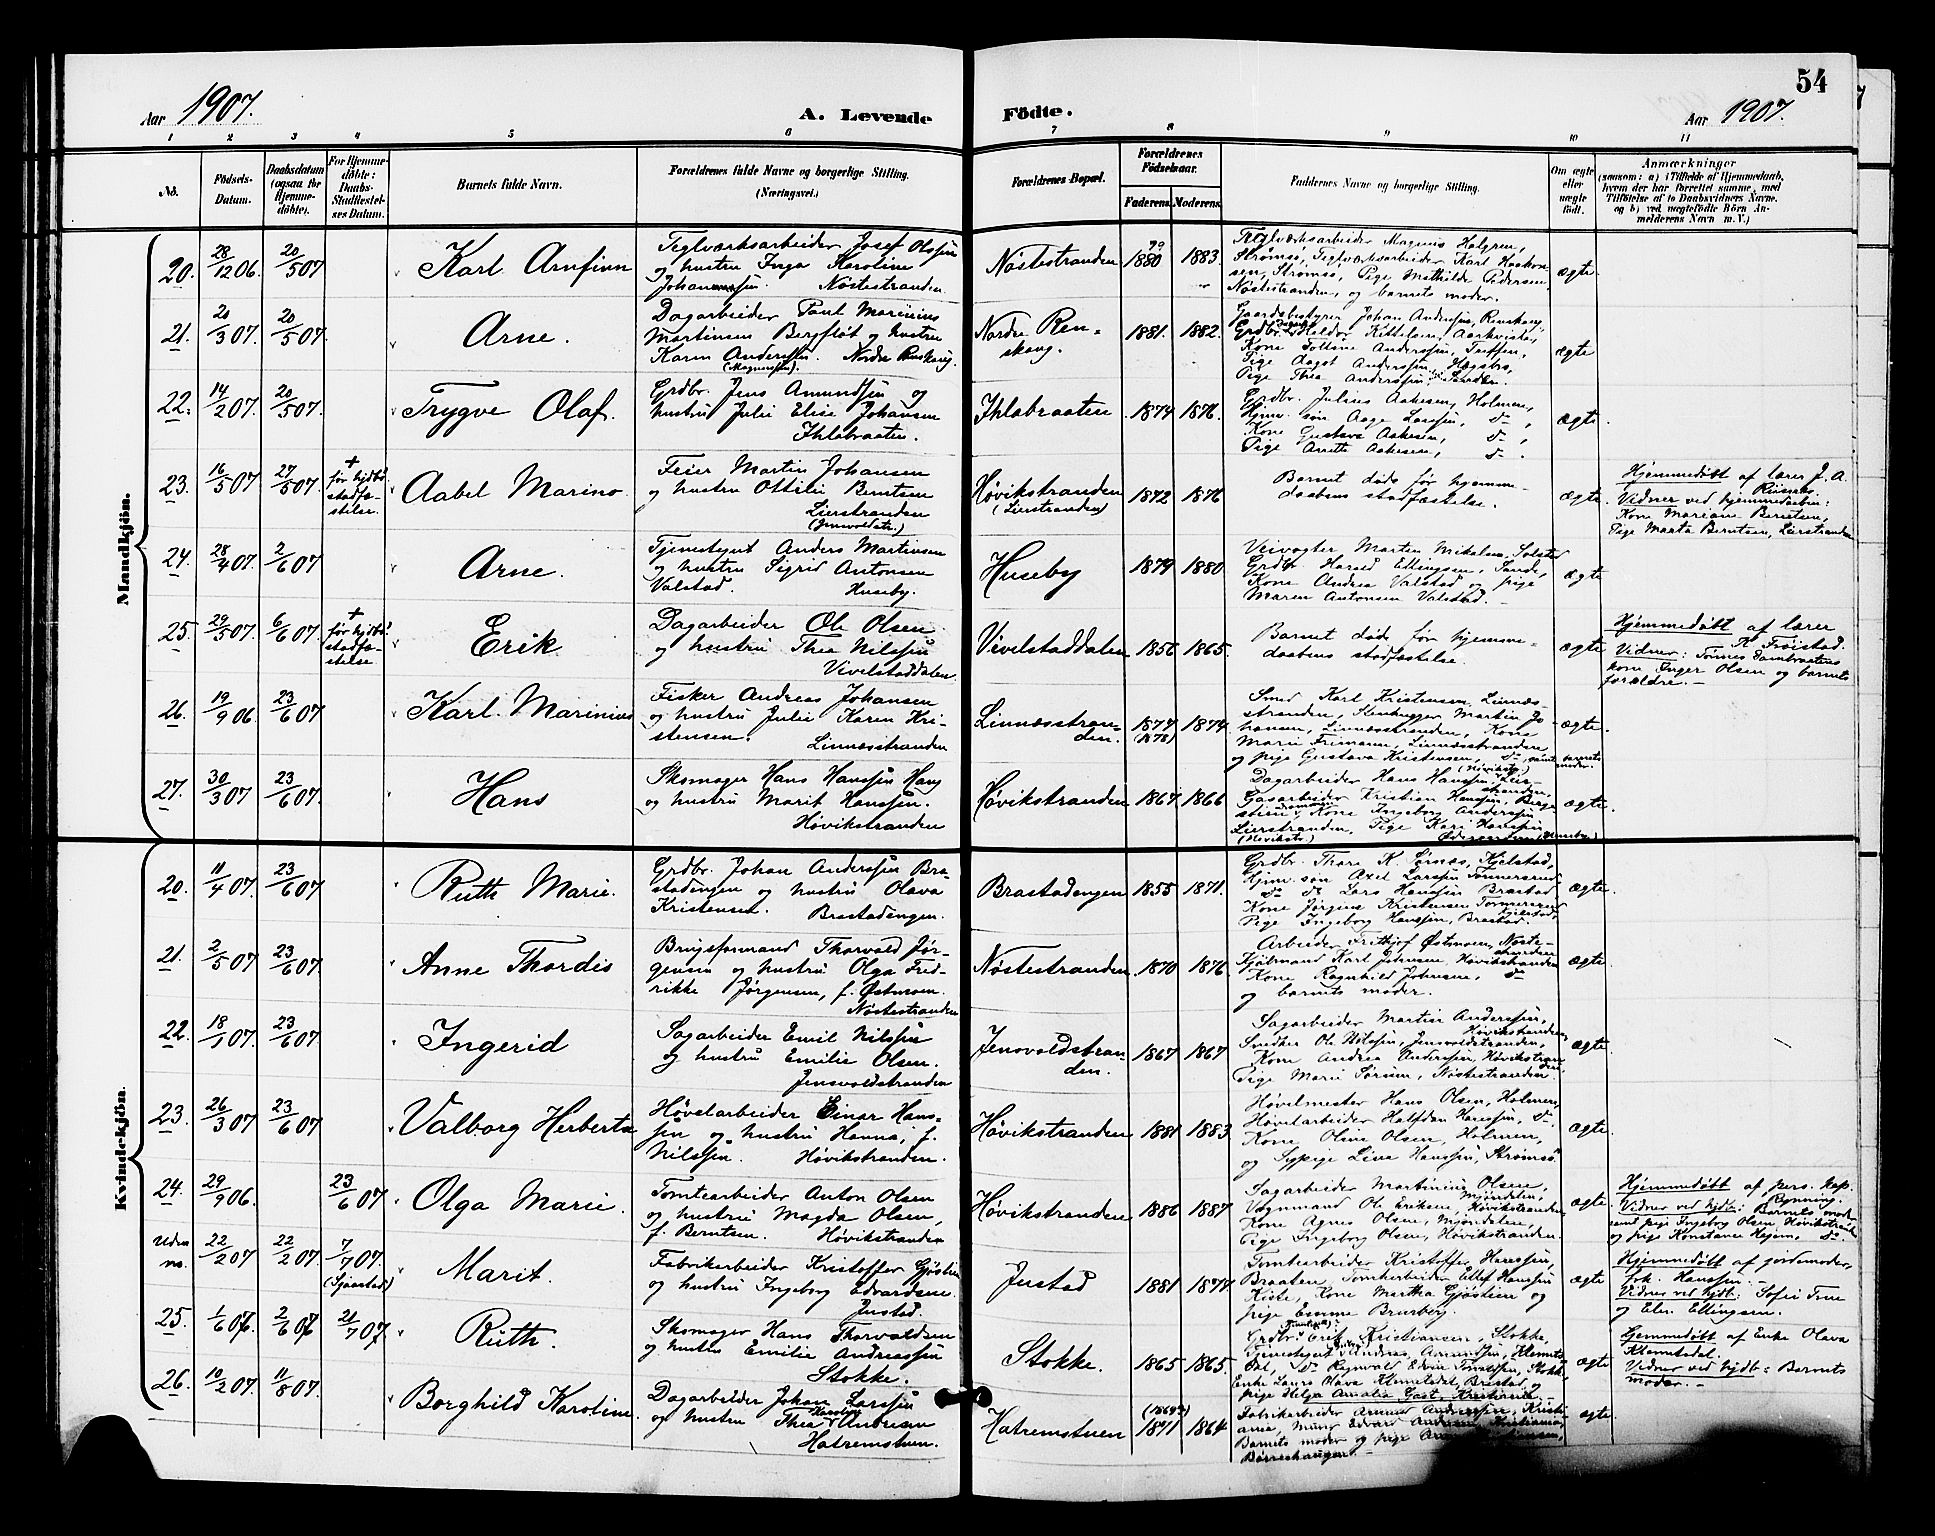 54
Aar 1907.
A. Levende Födte.
Aar 1907.
1 2 3 4 5 6 7 8 9 10 11
No.
Födsels-Datum.
Daabsdatum (ogsaa for Hjemme-döbte).
For Hjemme-döbte: Daabs-Stadfæstel-ses Datum.
Barnets fulde Navn.
Forældrenes fulde Navne og borgerlige Stilling.
(Næringsvei.)
Forældrenes Bopæl.
Forældrenes Födselsaar.
Faderens. Moderens.
Faddernes Navne og borgerlige Stilling.
Om ægte eller uægte født.
Anmærkninger
(saasom: a) i Tilfælde af Hjemmedaab, hvem der har forrettet samme, med Tilföielse af to Daabsvidners Navne, og b) ved uægtefödte Börn An-melderens Navn m. V.)
Mandkjön.
20. 28/12 06. 20/5 07 Karl Arnfinn
Teglværksarbeider Josef Olssen
og hustru Inga Karoline
Johannessen. Nøstestranden
Nøstestranden 1880 1883.
Teglværksarbeider Magnus Holgren,
Strømsø, Teglværksarbeider Karl Haakon-
sen, Strømsø, Pige Mathilde Pedersen,
Nøstestranden, og barnets moder.
ægte
21. 20/3 07. 20/5 07. Arne.
Dagarbeider Paul Marinius
Martinsen Bergfløt og hustru
Karen Anderssen. Nordre Renskaug.
(Magnussen).
Nordre Ren-
skaug. 1881. 1882.
Gaardsbestyrer Johan Anderssen, Renskaug,
Grdbr. Haldor Kittelsen, Aarkvisla,
Kone Tolline Anderssen,
Pige Aagot Anderssen, Hægsbro,
Pige Thea Anderssen,
ægte
22. 14/2 07. 20/5 07. Trygve Olaf.
Grdbr. Jens Amundsen og
hustru Julie Elise Johansen
Ihlabraaten.
Ihlabraaten 1874 1876.
Grdbr. Julius Aakesen, Holmen,
Hjmv. søn Aage Larssen, do,
Kone Gustava Aakesen, do,
Pige Anette Aakesen, do.
ægte.
23. 16/5 07 27/5 07. + før hjdbs stadfæ-stelse. Aabel Marino
Feier Martin Johansen
og hustru Ottilie Berntsen
Lierstranden
(Jensvoldstr.)
Høvikstranden
(Lierstranden) 1872 1876
Barnet døde før hjemme-
daabens stadfæstelse.
ægte.
Hjemmedøbt af lærer J. A.
Riisnæs.
Vidner ved hjemmedaaben:
Kone Mariane Berntsen,
Pige Marta Berntsen, Lierstranden
24. 28/4 07. 2/6 07 Arne.
Tjenestegut Anders Martinsen
og hustru Sigrid Antonsen
Valstad. Huseby.
Huseby 1879 1880
Veivogter Martin Mikalsen, Solstad
Grdbr. Harald Ellingsen, Sande,
Kone Andrea Valstad og pige
Maren Antonsen Valstad.
ægte
25. 29/5 07. 6/6 07 + før hjdbs stadfæ-stelse Erik
Dagarbeider Ole Olsen
og hustru Thea Nilssen
Vivelstaddalen
Vivelstaddalen 1856 1865.
Barnet døde før hjemme-
daabens stadfæstelse.
ægte
Hjemmedøbt af lærer
K. Frøistad.
Vidner: Tønnes Tømbraatens
kone Inger Olsen og barnets
forældre.
26. 19/9 06. 23/6 07 Karl Marinius
Fisker Andreas Johansen
og hustru Julie Karen Kri-
stensen. Linnæsstranden
Linnæsstran-
den. 1877 (1878) 1874.
Smed Karl Kristensen, Linnæs-
stranden, Stenhugger Martin Jo-
hansen, Linnæsstranden, Kone
Marie Frimann, Linnæsstranden,
og pige Gustava Kristensen, do samt barnets moder.
ægte.
27. 30/3 07 23/6 07. Hans
Skomager Hans Hanssen Haug
og hustru Marit Hanssen.
Høvikstranden
Høvikstranden 1867 1866
Dagarbeider Hans Hanssen, Lier-
stranden,
Gasarbeider Kristian Hanssen, Brage-
Kone Ingeborg Anderssen
Lierstranden, Pige Kari Hanssen
ægte.
Kvindekjön.
20. 11/4 07. 23/6 07. Ruth Marie.
Grdbr. Johan Anderssen Bra-
stadengen og hustru Olava
Kristensen. Brastadengen.
Brastadengen 1855 1871.
Grdbr. Thore K. Lirnæs, Kjelstad,
Hjmv. søn Axel Larssen Tømmersrud
do do Lars Hanssen Brastad
Kone Jørgine Kristensen Tømmersrud
Pige Ingeborg Hanssen, Brastad
ægte.
21. 2/5 07 23/6 07 Anne Thordis
Brugsformand Thorvald Jør-
gensen og hustru Olga Fred-
rikke Jørgensen, f. Østmoen.
Nøstestranden
Nøstestranden 1870 1876
Arbeider Frithjof Østmoen, Nøste-
stranden
Sjømand Karl Johnsen, Høvikstranden
Kone Ragnhild Johnsen, do
og barnets moder.
ægte.
22. 18/1 07. 23/6 07. Ingerid
Sagarbeider Emil Nilssen
og hustru Emilie Olsen.
Jensvoldstranden
Jensvoldstran-
den. 1867 1867
Sagarbeider Martin Anderssen,
Høvikstranden,
Snedker Ole Nilssen, Jensvoldstranden,
Kone Andrea Anderssen, Høvikstran-
den,
Pige Marie Sørum, Nøstestranden.
ægte.
23. 26/3 07 23/6 07 Valborg Herberta
Høvelarbeider Einar Hans-
sen og hustru Hanna, f.
Nilssen. Høvikstranden.
Høvikstranden 1881 1883
Høvelmester Hans Olsen, Holmen,
Høvelarbeider Halfdan Hanssen, do,
Kone Oline Olsen, Holmen,
og Sypige Lina Hanssen, Strømsø.
ægte.
24. 29/9 06. 23/6 07 Olga Marie.
Tomtearbeider Anton Olsen
og hustru Magda Olsen,
f. Berntsen. Høvikstranden
Høvikstranden 1886 1887
Sagarbeider Martinius Olsen,
Mjøndalen,
Vognmand Ole Eriksen, Høvikstranden
Kone Agnes Olsen, Mjøndalen,
Pige Ingeborg Olsen, Høvikstranden.
ægte
Hjemmedøbt af pers. kap.
Rynning.
Vidner ved hjdb: Barnets moder
samt pige Ingeborg Olsen, Høvikstrand
og pige Konstance Hejem, do
Uden no. 22/2 07 22/2 07. 7/7 07. (Sjaastad) Marit.
Fabrikarbeider Kristoffer Gjøstien
og hustru Ingeborg Edvardsen.
Justad.
Justad 1881 1874.
Tomtearbeider Kristoffer Hanssen,
Braaten, Tomtearbeider Ellef Hanssen
Kiste, Kone Martha Gjøstien og
pige Emma Brurberg.
ægte
Hjemmedøbt af jordemoder
frk. Hanssen.
Vidner ved hjdb: Sofie True
og Elen Ellingsen.
25. 1/6 06. 2/6 06 21/7 07 Ruth.
Skomager Hans Thorvaldsen
og hustru Emilie Andreassen
Stokke.
Stokke. 1865 1865.
Grdbr. Erik Kristiansen, Stokke,
Tjenestegut Andreas Amundsen, Klemets-
dal, do Reynvald Edvin Tomassen, Stokke,
Enke Laura Olava Klemetsdal, Brastad, og
pige Helga Amalia Gast, Kristiania.
ægte
Hjemmedøbt af Enke Olava
Klemetsdal.
Vidner ved hjdb: Barnets
moder.
26. 10/2 07. 11/8 07. Borghild Karoline.
Dagarbeider Johan Larssen
og hustru Thea Karoline Andersen
Hatremstuen.
Hatremstuen 1871 1864
Fabrikarbeider Amund Anderssen, Kristi-
ania, Murer Edvard Kristiania,
Barnets moder og pige
Børreshaugen.
ægte.